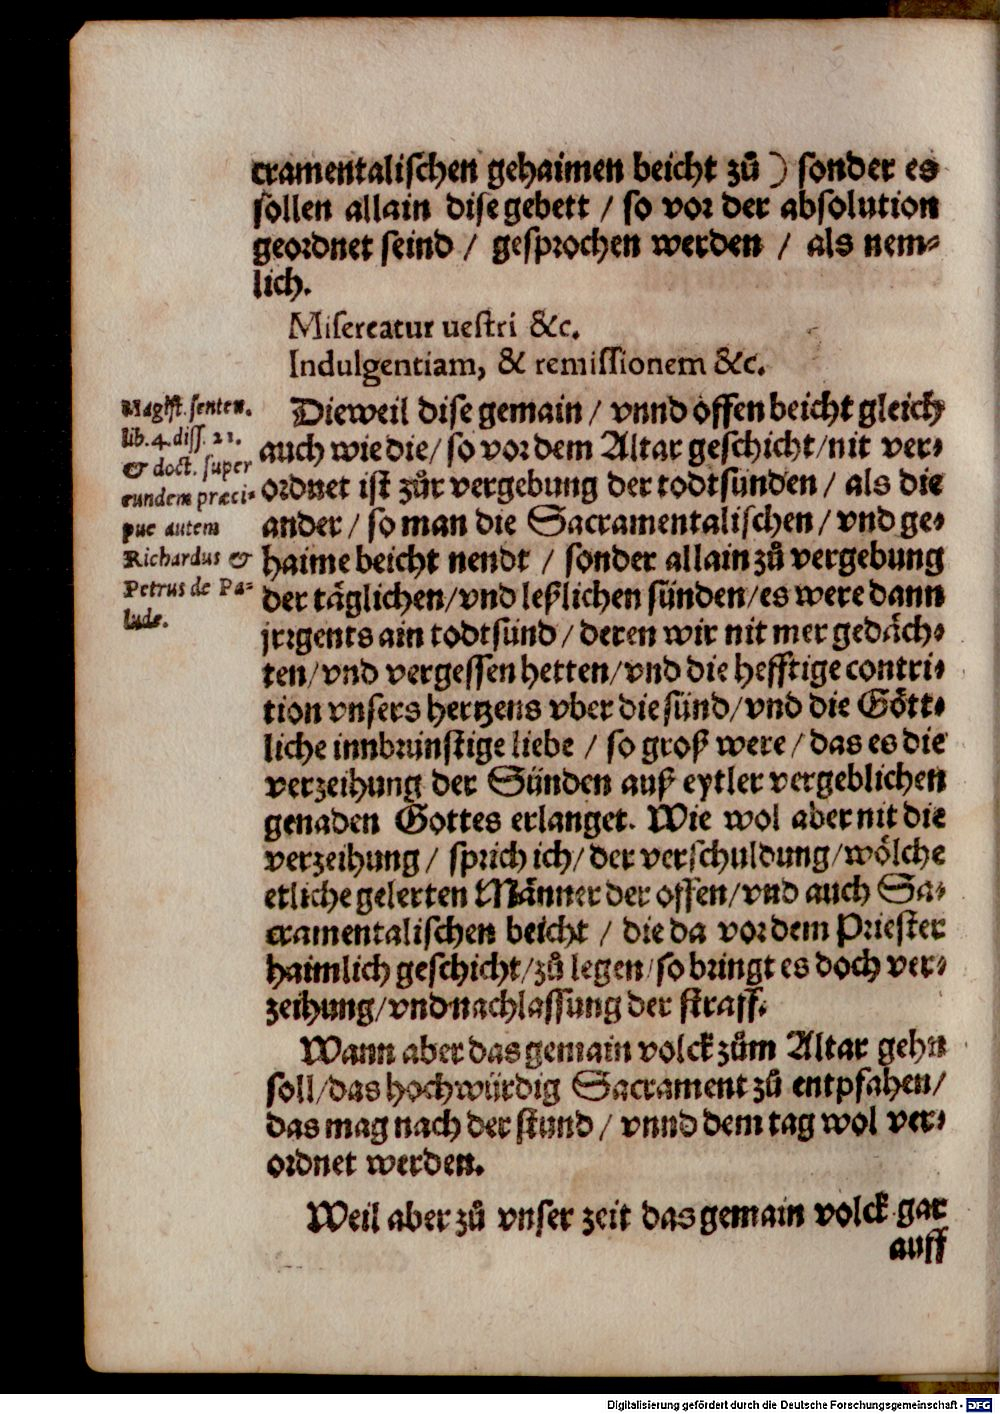 cramentalischen gehaimen beicht zuͦ ) sonder es
sollen allain dise gebett / so vor der absolution
geordnet seind / gesprochen werden / als nem⸗
lich.
Misereatur uestri &c.
Indulgentiam, & remissionem &c.
Magist. senten.
lib. 4. diss. 21.
& doct. super
eundem præci⸗
pue autem
Richardus &
Petrus de Pa⸗
lude.
Dieweil dise gemain / vnnd offen beicht gleich
auch wie die / so vor dem Altar geschicht / nit ver⸗
ordnet ist zuͦr vergebung der todtsünden / als die
ander / so man die Sacramentalischen / vnd ge⸗
haime beicht nendt / sonder allain zuͦ vergebung
der täglichen / vnd leßlichen sünden / es were dann
jrrgents ain todtsünd / deren wir nit mer gedäch⸗
ten / vnd vergessen hetten / vnd die hefftige contri⸗
tion vnsers hertzens vber die sünd / vnd die Gött⸗
liche innbrünstige liebe / so groß were / das es die
verzeihung der Sünden auß eytler vergeblichen
genaden Gottes erlanget. Wie wol aber nit die
verzeihung / sprich ich / der verschuldung / wölche
etliche gelerten Männer der offen / vnd auch Sa⸗
cramentalischen beicht / die da vor dem Priester
haimlich geschicht / zuͦ legen / so bringt es doch ver⸗
zeihung / vnd nachlassung der straff.
Wann aber das gemain volck zuͦm Altar gehn
soll / das hochwürdig Sacrament zuͦ entpfahen /
das mag nach der stund / vnnd dem tag wol ver⸗
ordnet werden.
Weil aber zuͦ vnser zeit das gemain volck gar
auff
Digitalisierung gefördert durch die Deutsche Forschungsgemeinschaft - DFG